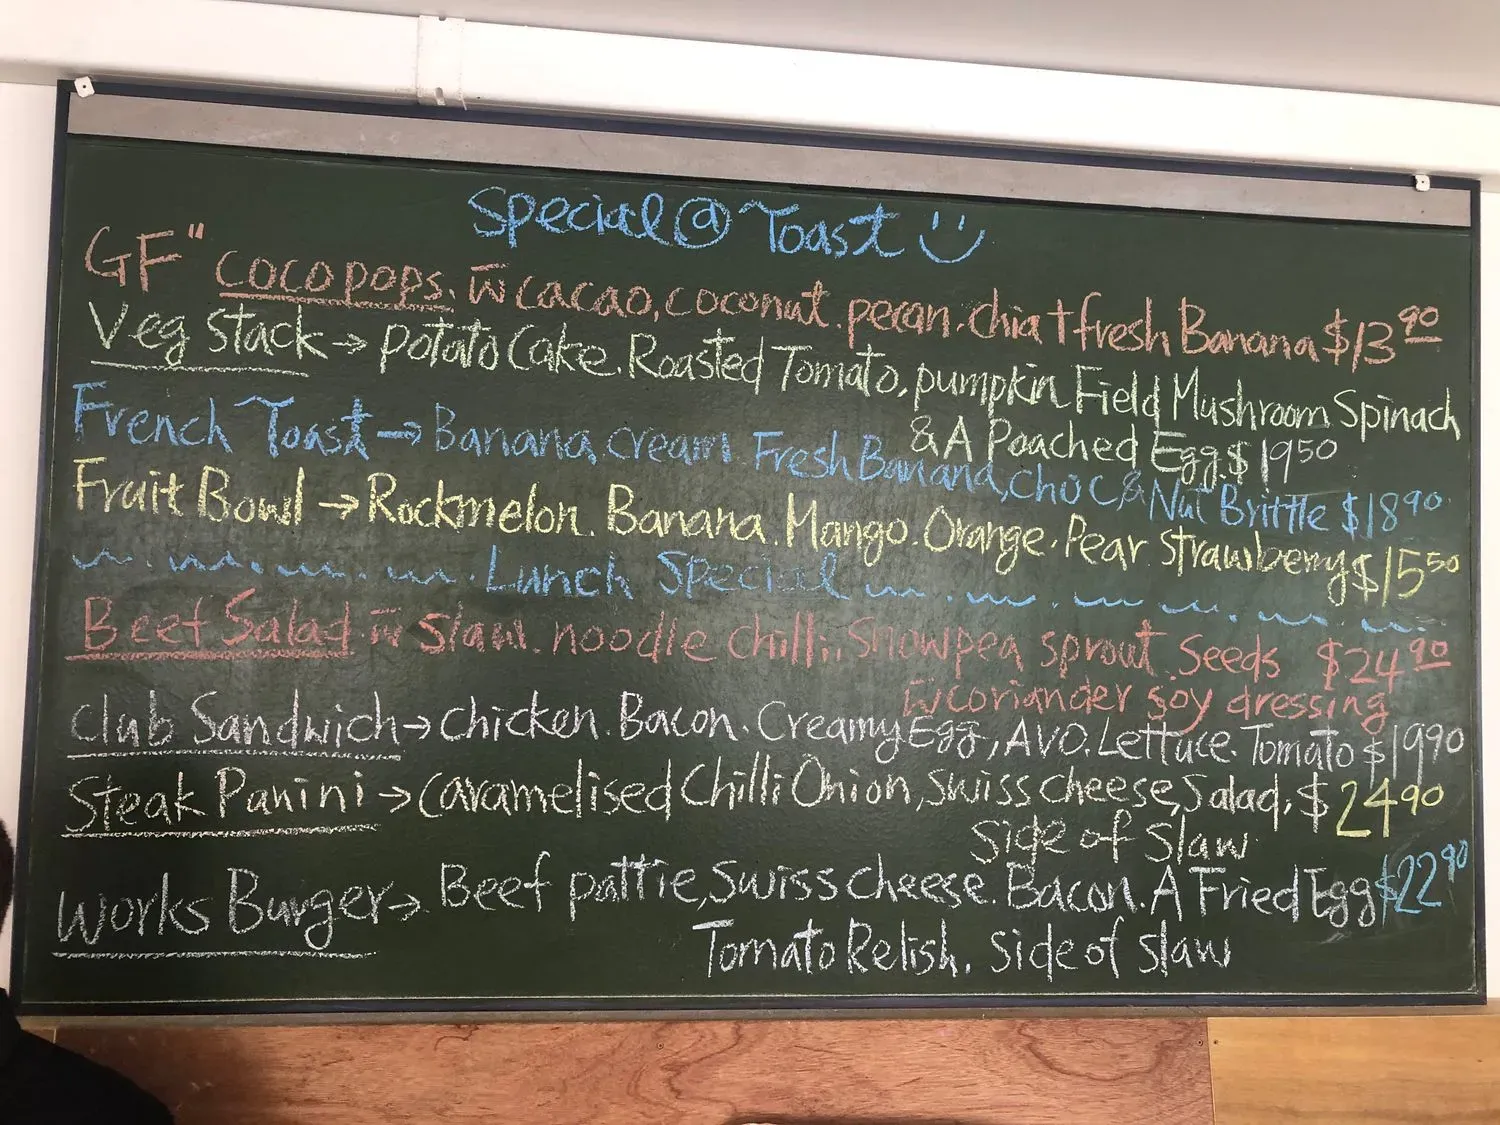 Special @ Toast
GF" cocopops. w̄ cacao, coconut. pecan. chia + fresh Banana $13 90
Veg Stack → potato Cake. Roasted Tomato, pumpkin Field Mushroom Spinach
& A Poached Egg. $19 50
French Toast → Banana cream. Fresh Banana, choc, & Nut Brittle $18 90
Fruit Bowl → Rockmelon. Banana. Mango. Orange. Pear. Strawberry $15 50
Lunch Special
Beef Salad w̄ Slaw. noodle chilli, Snowpea sprout. Seeds $24 90
w̄ coriander soy dressing
Club Sandwich → chicken. Bacon. Creamy Egg, AVO. Lettuce. Tomato $19 90
Steak Panini → Caramelised Chilli Onion, Swiss cheese, Salad, $24 90
Side of Slaw
Works Burger → Beef pattie, Swiss cheese. Bacon. A Fried Egg $22 90
Tomato Relish. Side of slaw